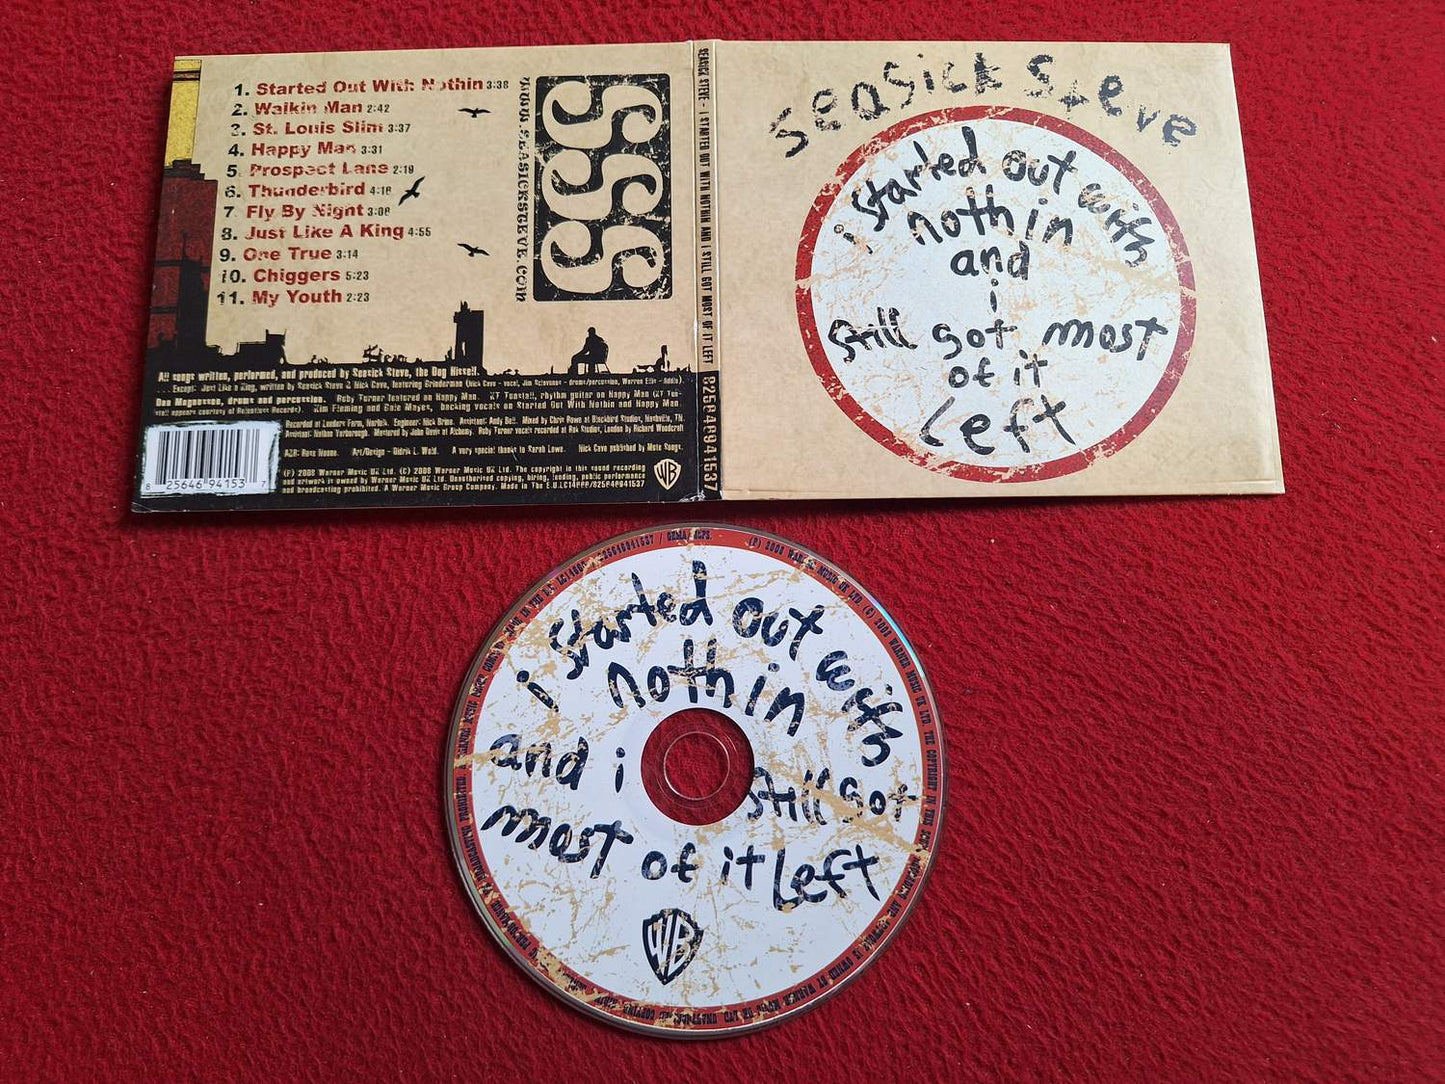 1. Started Out With Nothin 3:38
2. Walkin Man 2:42
3. St. Louis Slim 3:37
4. Happy Man 3:31
5. Prospect Lane 2:19
6. Thunderbird 4:18
7. Fly By Night 3:08
8. Just Like A King 4:55
9. One True 3:14
10. Chiggers 5:23
11. My Youth 2:23
SSS
www.seasicksteve.com
All songs written, performed, and produced by Seasick Steve, the Dog Hisself.
... Except: Just Like a King, written by Seasick Steve & Nick Cave, featuring Grinderman (Nick Cave - vocal, Jim Sclavunos - drums/percussion, Warren Ellis - fiddle).
Dan Magnusson, drums and percussion. Ruby Turner featured on Happy Man. KT Tunstall, rhythm guitar on Happy Man (KT Tun-
stall appears courtesy of Relentless Records). Kim Fleming and Gale Mayes, backing vocals on Started Out With Nothin and Happy Man.
Recorded at Leeders Farm, Norfolk. Engineer: Nick Brine. Assistant: Andy Ball. Mixed by Chris Rowe at Blackbird Studios, Nashville, TN.
Assistant: Nathan Yarborough. Mastered by John Davis at Alchemy. Ruby Turner vocals recorded at Rak Studios, London by Richard Woodcraft
A&R: Ross Noone. Art/Design - Didrik L. Wold. A very special thanks to Sarah Lowe. Nick Cave published by Mute Songs.
(P) 2008 Warner Music UK Ltd. (C) 2008 Warner Music UK Ltd. The copyright in this sound recording
and artwork is owned by Warner Music UK Ltd. Unauthorised copying, hiring, lending, public performance
and broadcasting prohibited. A Warner Music Group Company. Made in The E.U. LC14666/825646941537
8 25646 94153 7
WB
SEASICK STEVE - I STARTED OUT WITH NOTHIN AND I STILL GOT MOST OF IT LEFT 825646941537
Seasick Steve
i started out with
nothin
and
i
still got most
of it
left
i started out with
nothin
and i still got
most of it left
WB
(P) 2008 WARNER MUSIC UK LTD. (C) 2008 WARNER MUSIC UK LTD. THE COPYRIGHT IN THIS